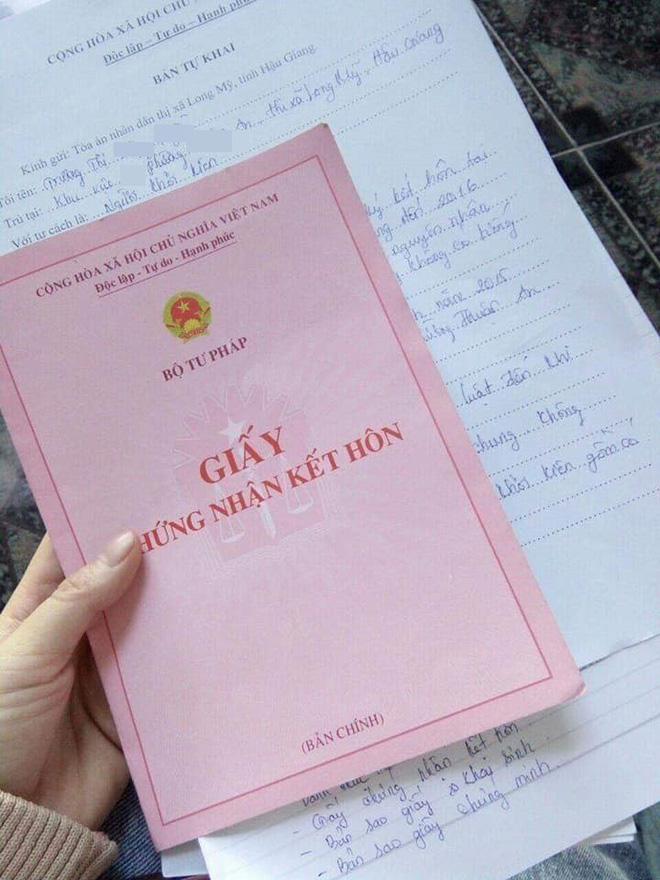 CỘNG HÒA XÃ HỘI CHỦ
Độc lập – Tự do – Hạnh phúc
BẢN TỰ KHAI
Kính gửi: Tòa án nhân dân thị xã Long Mỹ, tỉnh Hậu Giang.
Tôi tên: Trương Thị
Trú tại: Khu vực phường An, thị xã Long Mỹ, Hậu Giang
Với tư cách là: Người khởi kiện
kết hôn tại
đến 2016
nguyên nhân
không có tiếng
năm 2015
Thuận An
luật đến khi
chung không
khởi kiện gồm có
CỘNG HÒA XÃ HỘI CHỦ NGHĨA VIỆT NAM
Độc lập - Tự do - Hạnh phúc
BỘ TƯ PHÁP
GIẤY
HỨNG NHẬN KẾT HÔN
(BẢN CHÍNH)
- Giấy chứng nhận kết hôn
- Bản sao giấy khai sinh
- Bản sao giấy chứng minh